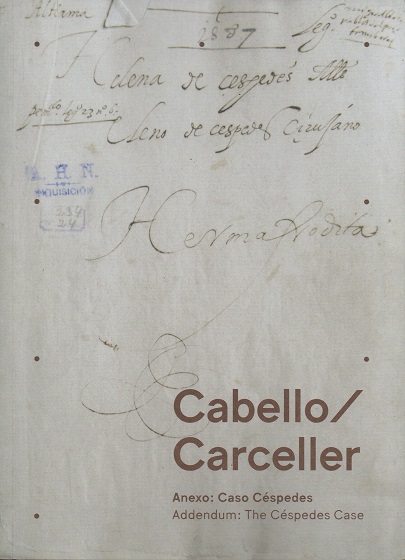 Alhama
1587
Helena de cespedes Alls
Eleno de cespedes Cirujano
A. H. N.
INQUISICION
234
24
Hermafrodita
Cabello/
Carceller
Anexo: Caso Céspedes
Addendum: The Céspedes Case